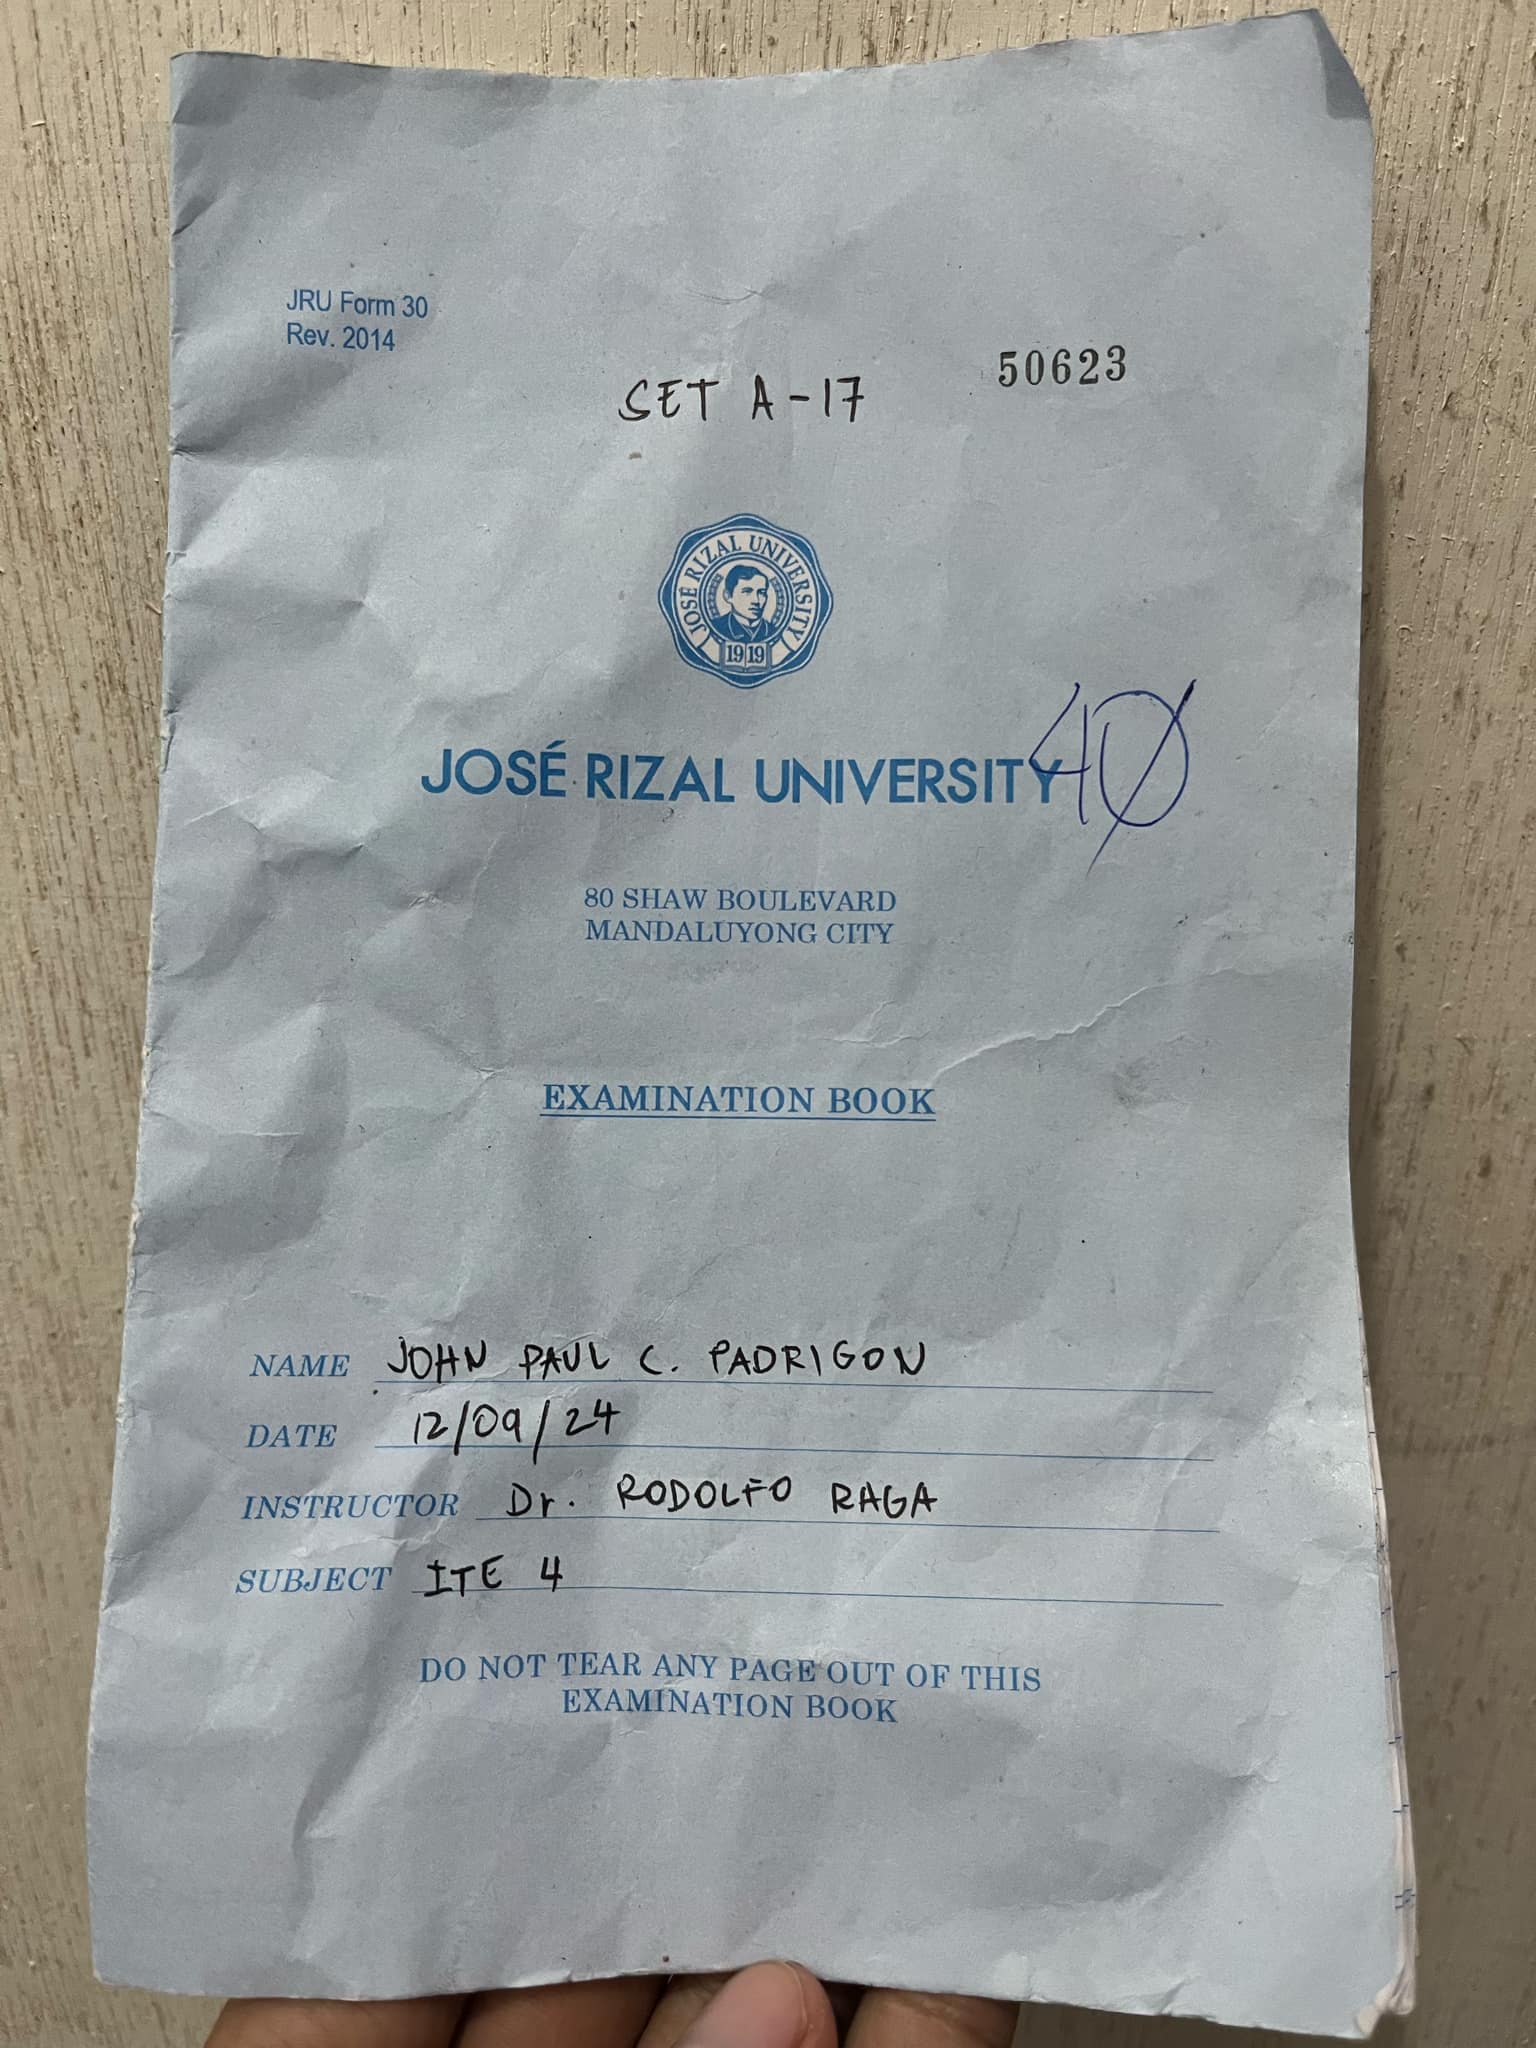 JRU Form 30
Rev. 2014
50623
SET A-17
JOSÉ RIZAL UNIVERSITY
1919
JOSÉ RIZAL UNIVERSITY
40
80 SHAW BOULEVARD
MANDALUYONG CITY
EXAMINATION BOOK
NAME JOHN PAUL C. PADRIGON
DATE 12/09/24
INSTRUCTOR Dr. RODOLFO RAGA
SUBJECT ITE 4
DO NOT TEAR ANY PAGE OUT OF THIS
EXAMINATION BOOK